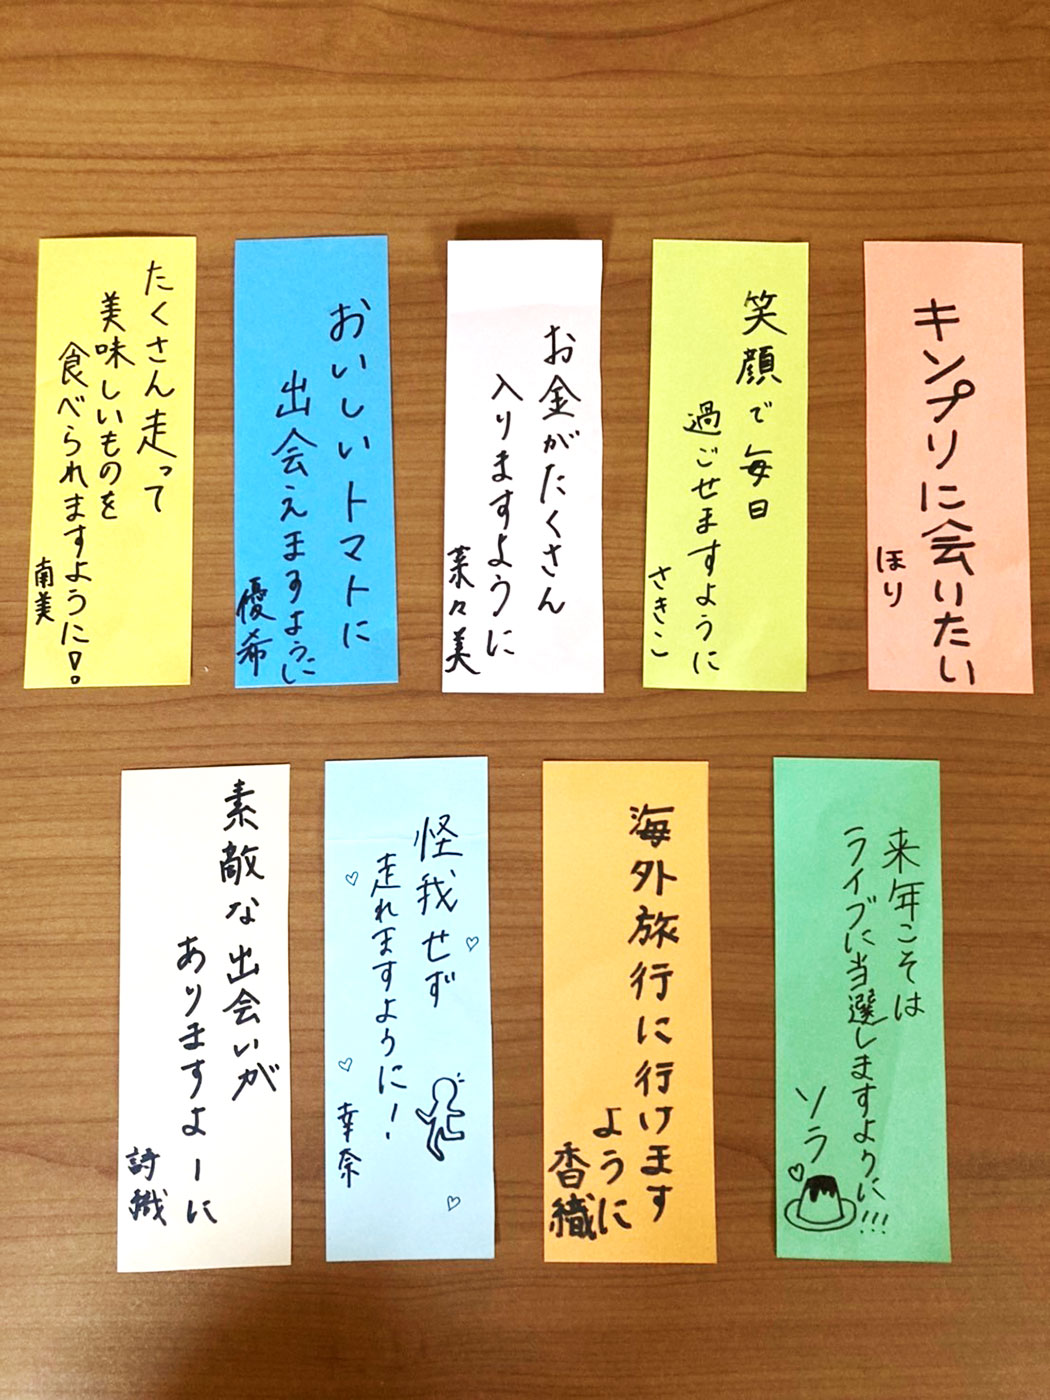 たくさん走って
美味しいものを
食べられますように!!
南美
おいしいトマトに
出会えますように
優希
お金がたくさん
入りますように
菜々美
笑顔で毎日
過ごせますように
さきこ
キンプリに会いたい
ほり
素敵な出会いが
ありますよーに
詩織
怪我せず
走れますように!
幸奈
海外旅行に行けます
ように
香織
来年こそは
ライブに当選しますように!!!
ソラ